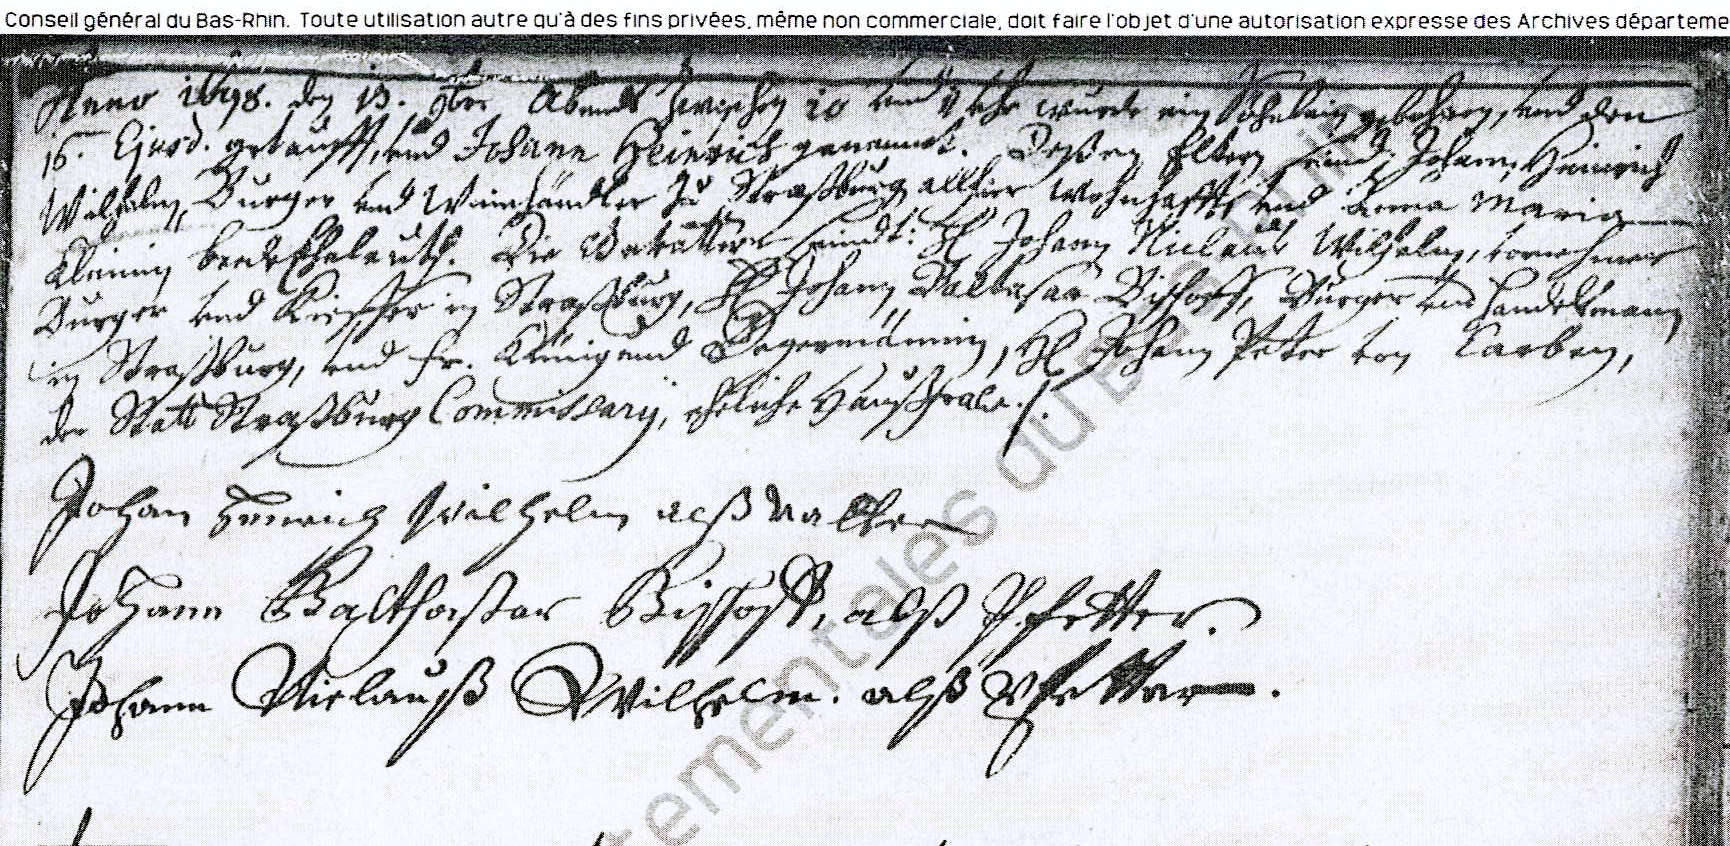 Conseil général du Bas-Rhin. Toute utilisation autre qu'à des fins privées, même non commerciale, doit faire l'objet d'une autorisation expresse des Archives départeme
Anno 1698. den 13. 9br. Abends zwischen 10 und 11 Uhr wurde ein Söhnlein gebohren, und den
15. Ejusd. getaufft, und Johann Heinrich genannt. Deßen Eltern sind, Johann Heinrich
Wilhelm, Burger und Weinhändler zu Straßburg allhier wohnhafft, und Anna Maria
Kleinin beede Eheleuth. Die sindt: H. Johann Niclauß Wilhelm, vornehmer
Burger und Kieffer in Straßburg, H. Johann Baltasar Bischoff, Burger und Handelsmann
in Straßburg, und Fr. Künigund, H. Johann Peter von Carben,
der Statt Straßburg Commissarij, eheliche Haußfrau.
Johan Heinrich Wilhelm alß Vatter
Johann Balthasar Bischoff, alß Pfetter.
Johann Niclauß Wilhelm. alß Pfetter.
tementales du Bas-Rhin